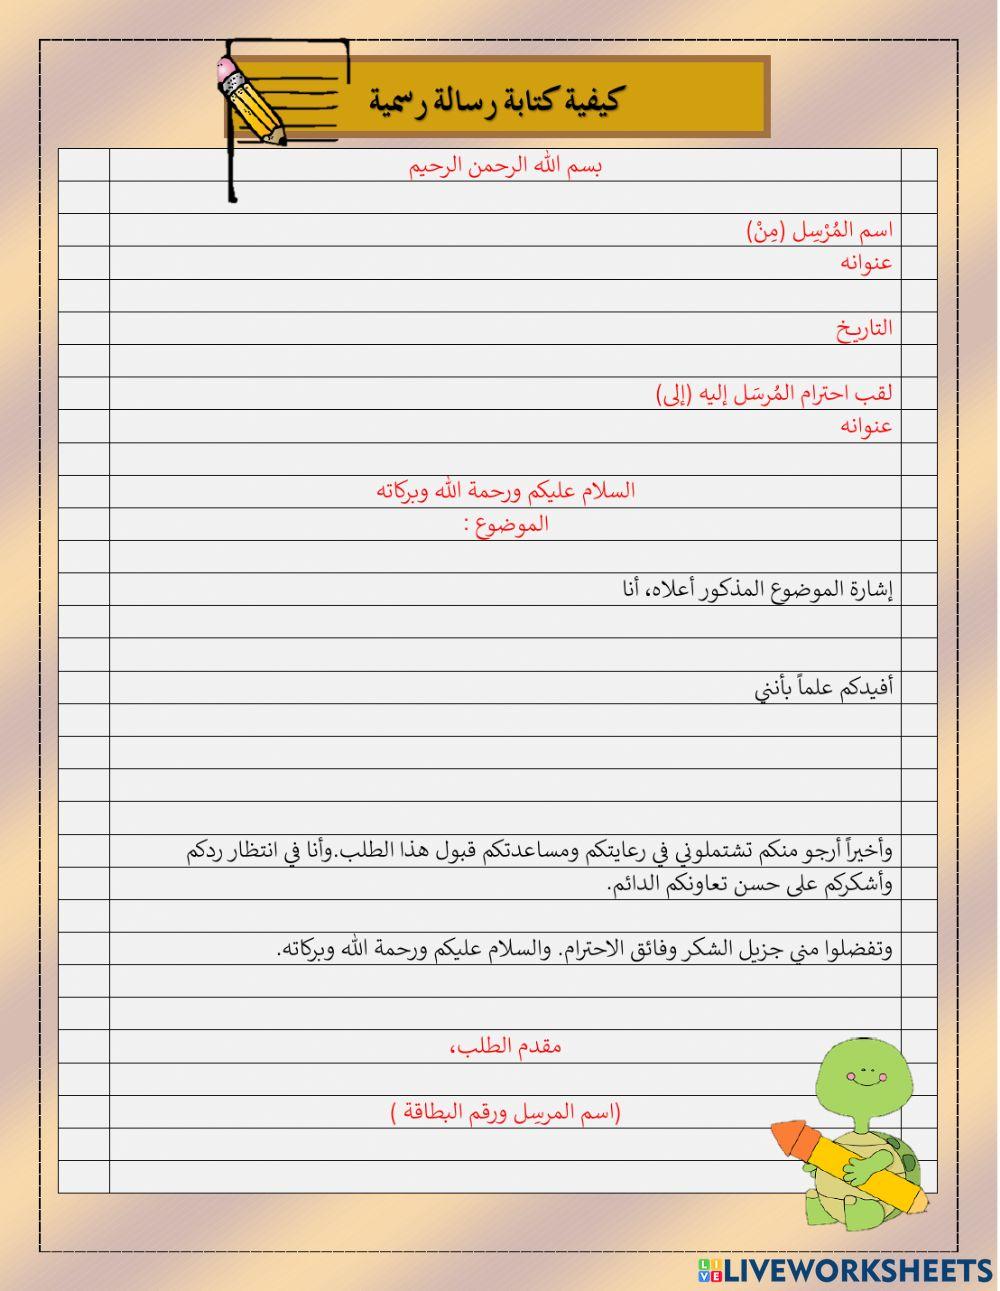 كيفية كتابة رسالة رسمية
بسم الله الرحمن الرحيم
اسم المُرْسِل (مِنْ)
عنوانه
التاريخ
لقب احترام المُرسَل إليه (إلى)
عنوانه
السلام عليكم ورحمة الله وبركاته
الموضوع :
إشارة الموضوع المذكور أعلاه، أنا
أفيدكم علماً بأنني
وأخيراً أرجو منكم تشتملوني في رعايتكم ومساعدتكم قبول هذا الطلب.وأنا في انتظار ردكم
وأشكركم على حسن تعاونكم الدائم.
وتفضلوا مني جزيل الشكر وفائق الاحترام. والسلام عليكم ورحمة الله وبركاته.
مقدم الطلب،
(اسم المرسِل ورقم البطاقة )
LIVE LIVEWORKSHEETS